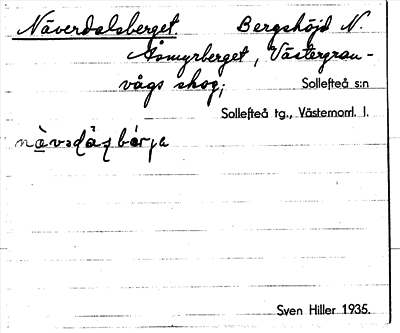 Näverdalsberget. Bergshöjd N.
Åsmyrberget, Västergran-
vågs skog;
Sollefteå s:n
Sollefteå tg., Västernorrl. l.
Sven Hiller 1935.